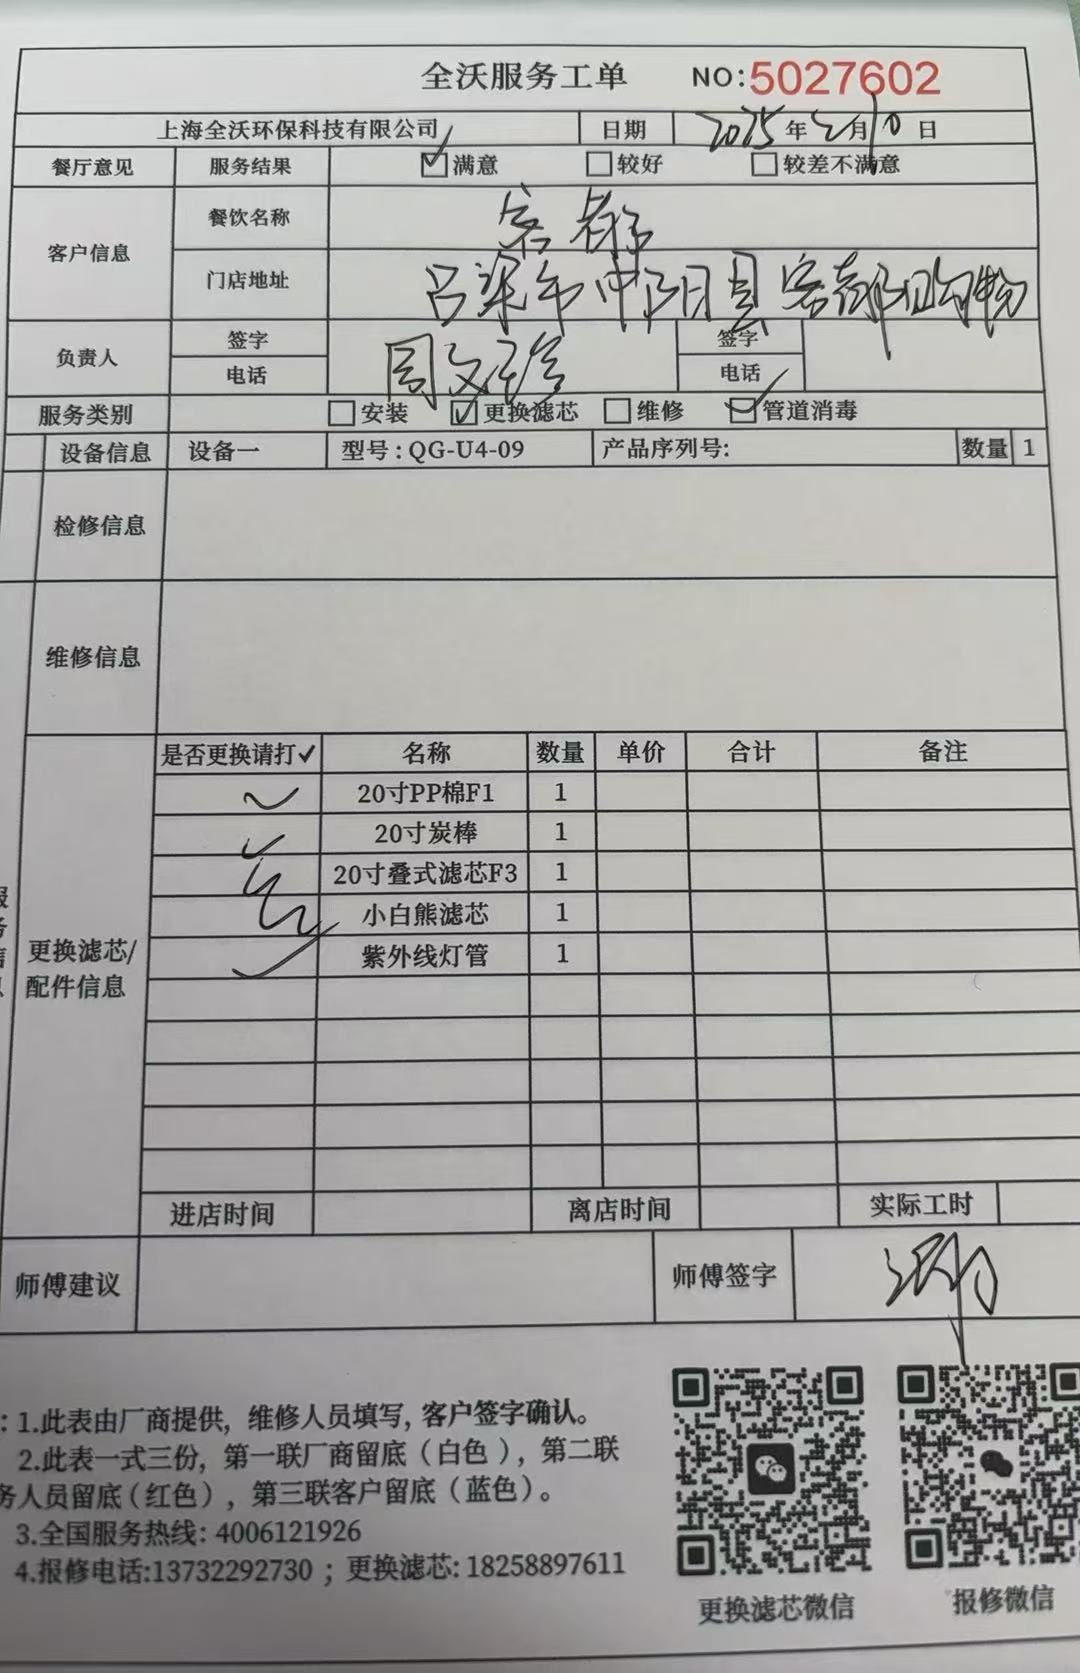 全沃服务工单 NO:5027602
上海全沃环保科技有限公司 日期 2025年2月10日
餐厅意见 服务结果 ☑满意 □较好 □较差不满意
客户信息 餐饮名称
门店地址 吕梁市中阳县客都购物
负责人 签字 签字
电话 电话
服务类别 □安装 ☑更换滤芯 □维修 ☑管道消毒
设备信息 设备一 型号:QG-U4-09 产品序列号: 数量 1
检修信息
维修信息
是否更换请打✓ 名称 数量 单价 合计 备注
✓ 20寸PP棉F1 1
✓ 20寸炭棒 1
✓ 20寸叠式滤芯F3 1
✓ 小白熊滤芯 1
✓ 紫外线灯管 1
更换滤芯/
配件信息
进店时间 离店时间 实际工时
师傅建议 师傅签字
:1.此表由厂商提供,维修人员填写,客户签字确认。
2.此表一式三份,第一联厂商留底(白色),第二联
务人员留底(红色),第三联客户留底(蓝色)。
3.全国服务热线:4006121926
4.报修电话:13732292730;更换滤芯:18258897611
更换滤芯微信 报修微信